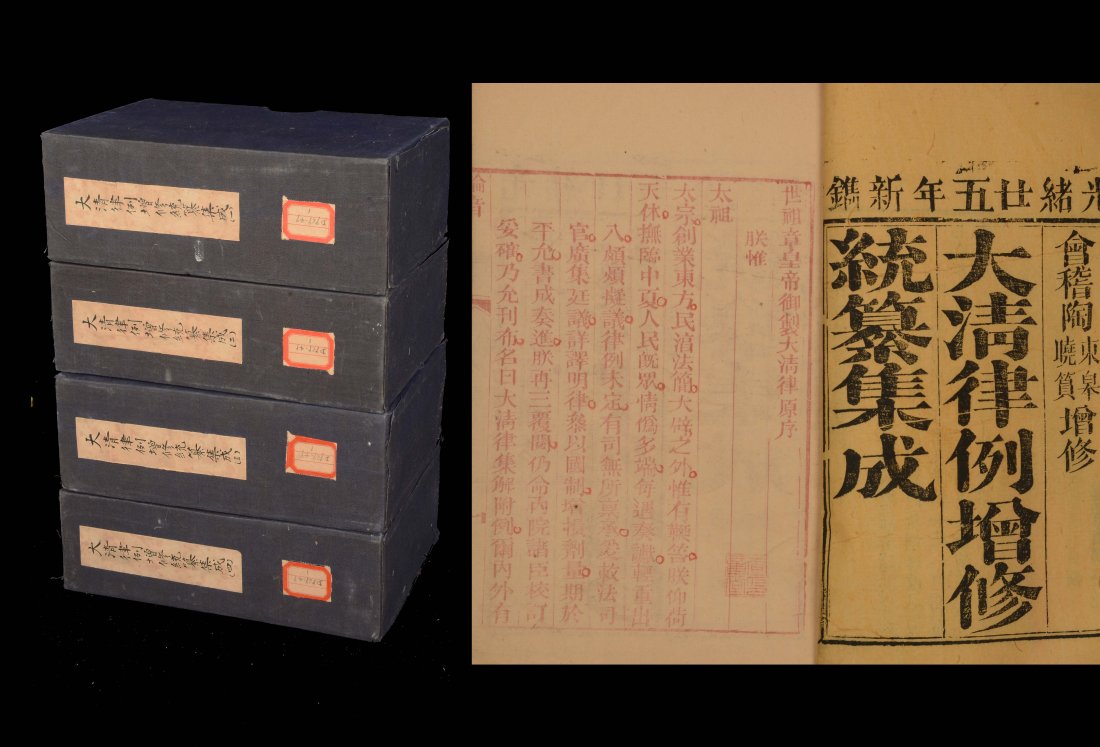 大清律例增修統纂集成(一)
大清律例增修統纂集成(二)
大清律例增修統纂集成(三)
大清律例增修統纂集成(四)
光緒廿五年新鐫
會稽陶東皋曉篔增修
大清律例增修
統纂集成
世祖章皇帝御製大清律原序
朕惟
太祖
太宗創業東方民淳法簡大辟之外惟有鞭笞朕仰荷
天休撫臨中夏人民既眾情偽多端每遇奏讞輕重出
入頗煩擬議律例未定有司無所稟承爰敕法司
官廣集廷議詳譯明律參以國制增損劑量期於
平允書成奏進朕再三覆閱仍命內院諸臣校訂
妥確乃允刊布名曰大清律集解附例爾內外有
諭旨